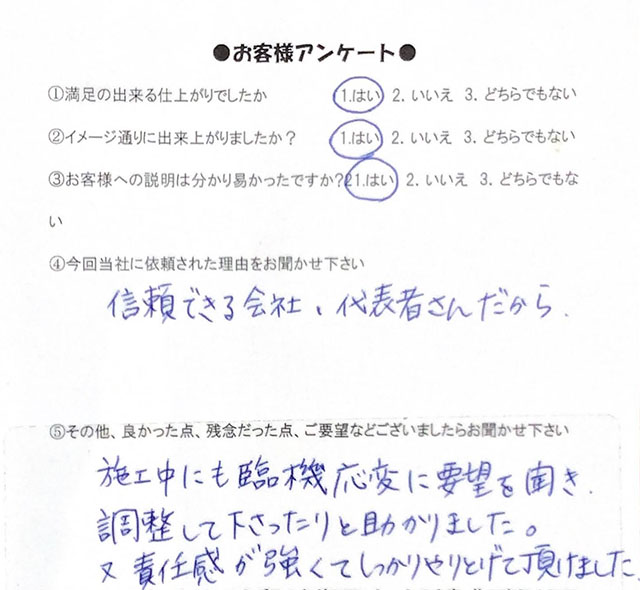 ●お客様アンケート●
①満足の出来る仕上がりでしたか 1.はい 2.いいえ 3.どちらでもない
②イメージ通りに出来上がりましたか？ 1.はい 2.いいえ 3.どちらでもない
③お客様への説明は分かり易かったですか？ 1.はい 2.いいえ 3.どちらでもな
い
④今回当社に依頼された理由をお聞かせ下さい
信頼できる会社、代表者さんだから.
⑤その他、良かった点、残念だった点、ご要望などございましたらお聞かせ下さい
施工中にも臨機応変に要望を聞き.
調整して下さったりと助かりました。
又責任感が強くてしっかりやりとげて頂けました.